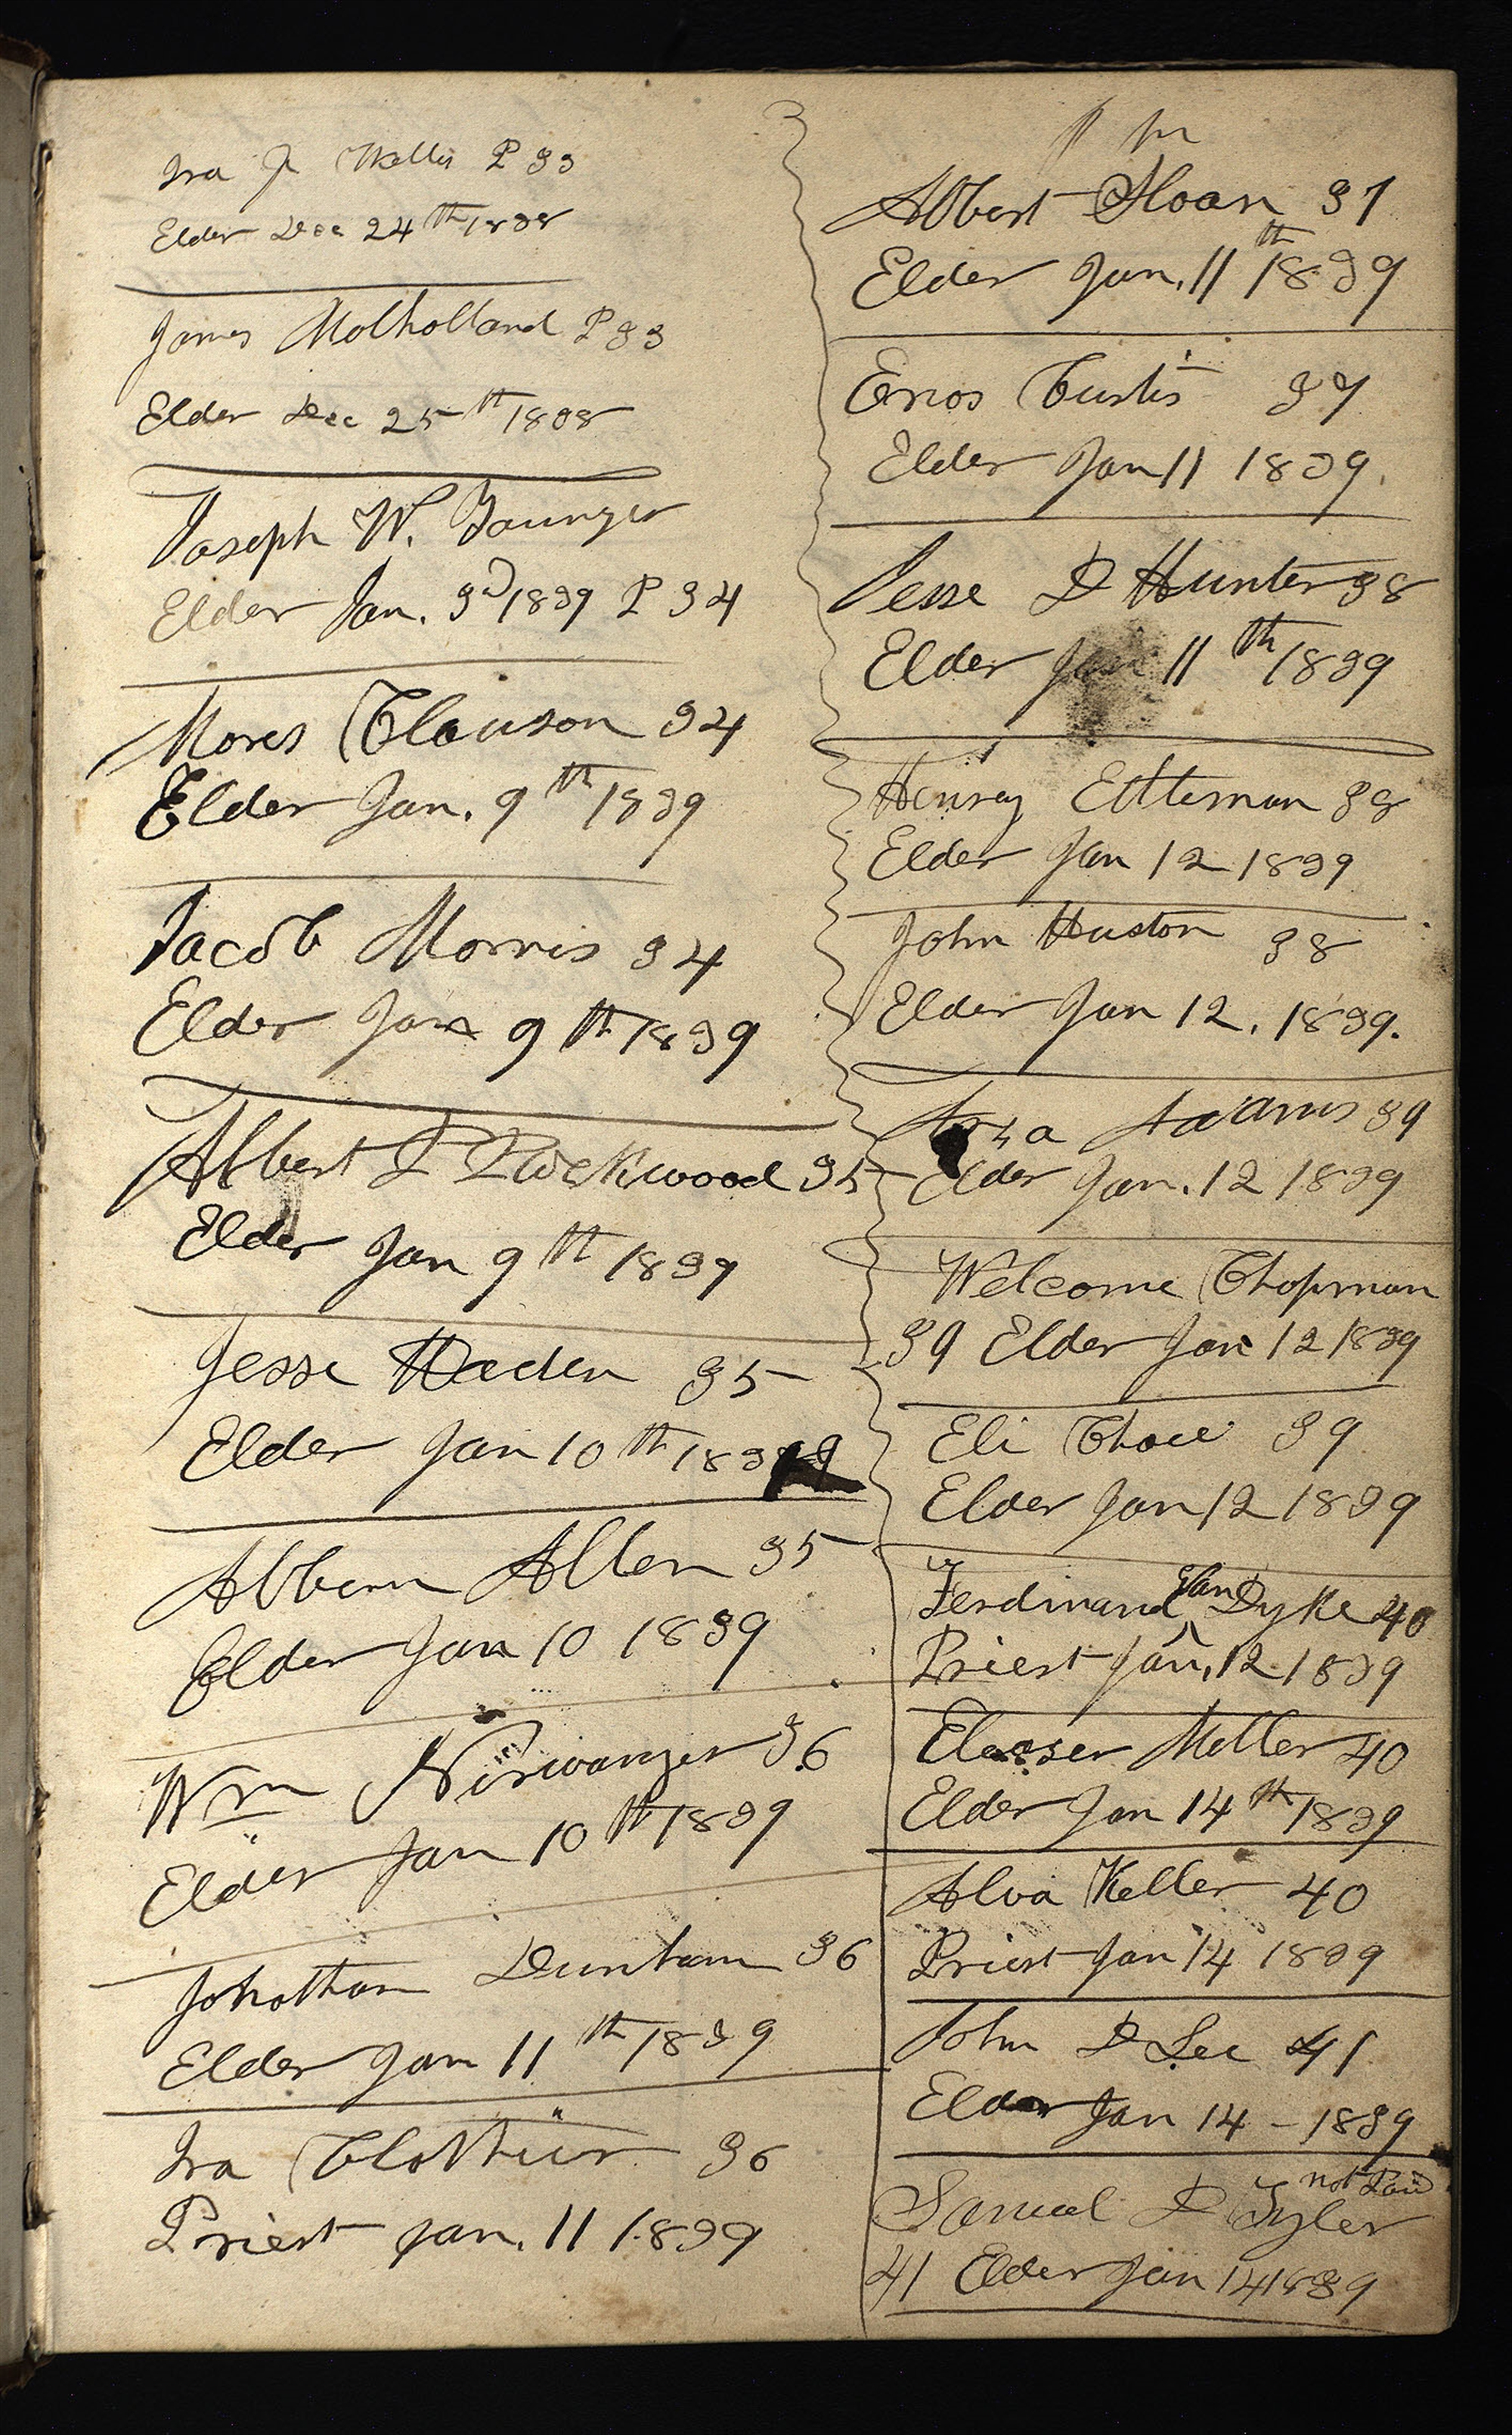 Ira J Willis P 33
Elder Dec 24th 1838
James Molholland P 33
Elder Dec 25th 1838
Joseph W. Younger
Elder Jan. 3d 1839 P 34
Moses Clauson 34
Elder Jan. 9th 1839
Jacob Morris 34
Elder Jan 9th 1839
Albert P Rockwood 35
Elder Jan 9th 1839
Jesse Haden 35
Elder Jan 10th 1839
Albern Allen 35
Elder Jan 10 1839
Wm Niswanger 36
Elder Jan 10th 1839
Johothan Dunham 36
Elder Jan 11th 1839
Ira Clothier 36
Priest Jan. 11 1839
Albert Sloan 37
Elder Jan. 11th 1839
Enos Curtis 37
Elder Jan 11 1839.
Jesse D Hunter 38
Elder Jan 11th 1839
Henry Ettleman 38
Elder Jan 12 1839
John Huston 38
Elder Jan 12. 1839.
Arza Adams 39
Elder Jan. 12 1839
Welcome Chapman
39 Elder Jan 12 1839
Eli Chace 39
Elder Jan 12 1839
Ferdinand Van Dyke 40
Priest Jan. 12 1839
Eleaser Meller 40
Elder Jan 14th 1839
Alva Keller 40
Priest Jan 14 1839
John D Lee 41
Elder Jan 14 - 1839
not Paid
Samuel D Tyler
41 Elder Jan 14 1839